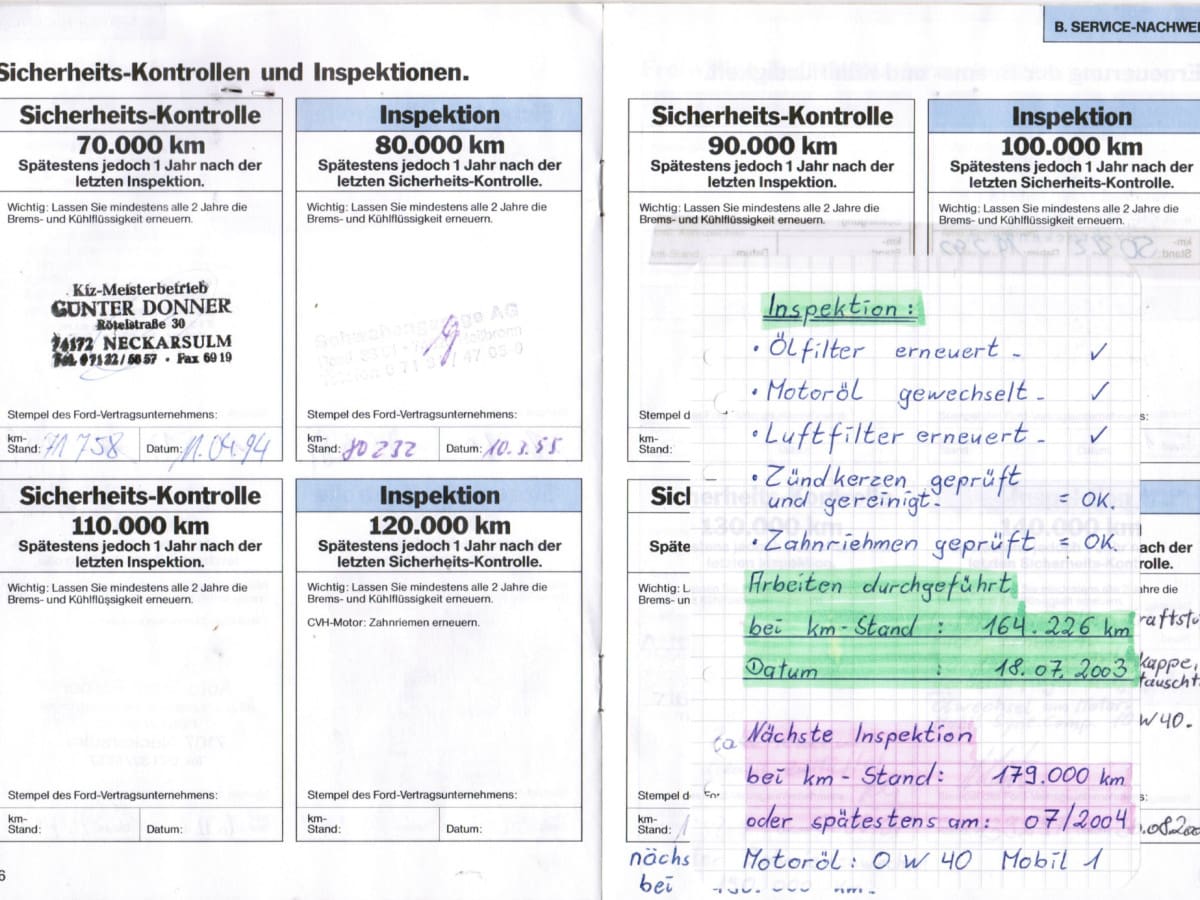 B. SERVICE-NACHWEI
Sicherheits-Kontrollen und Inspektionen.
Sicherheits-Kontrolle
70.000 km
Spätestens jedoch 1 Jahr nach der
letzten Inspektion.
Wichtig: Lassen Sie mindestens alle 2 Jahre die
Brems- und Kühlflüssigkeit erneuern.
Kfz-Meisterbetrieb
GÜNTER DONNER
Rötelstraße 30
74172 NECKARSULM
Tel. 07132/5657 · Fax 6919
Stempel des Ford-Vertragsunternehmens:
km-
Stand: 71 758 Datum: 11.04.94
Inspektion
80.000 km
Spätestens jedoch 1 Jahr nach der
letzten Sicherheits-Kontrolle.
Wichtig: Lassen Sie mindestens alle 2 Jahre die
Brems- und Kühlflüssigkeit erneuern.
Stempel des Ford-Vertragsunternehmens:
km-
Stand: 80232 Datum: 10.3.95
Sicherheits-Kontrolle
110.000 km
Spätestens jedoch 1 Jahr nach der
letzten Inspektion.
Wichtig: Lassen Sie mindestens alle 2 Jahre die
Brems- und Kühlflüssigkeit erneuern.
Stempel des Ford-Vertragsunternehmens:
km-
Stand: Datum:
Inspektion
120.000 km
Spätestens jedoch 1 Jahr nach der
letzten Sicherheits-Kontrolle.
Wichtig: Lassen Sie mindestens alle 2 Jahre die
Brems- und Kühlflüssigkeit erneuern.
CVH-Motor: Zahnriemen erneuern.
Stempel des Ford-Vertragsunternehmens:
km-
Stand: Datum:
6
Sicherheits-Kontrolle
90.000 km
Spätestens jedoch 1 Jahr nach der
letzten Inspektion.
Wichtig: Lassen Sie mindestens alle 2 Jahre die
Brems- und Kühlflüssigkeit erneuern.
Stempel d
km-
Stand:
Inspektion
100.000 km
Spätestens jedoch 1 Jahr nach der
letzten Sicherheits-Kontrolle.
Wichtig: Lassen Sie mindestens alle 2 Jahre die
Brems- und Kühlflüssigkeit erneuern.
Inspektion:
• Ölfilter erneuert - ✓
• Motoröl gewechselt - ✓
• Luftfilter erneuert - ✓
• Zündkerzen geprüft
und gereinigt. = OK.
• Zahnriemen geprüft = OK.
Arbeiten durchgeführt
bei km-Stand : 164.226 km
Datum : 18.07.2003
Nächste Inspektion
bei km-Stand: 179.000 km
oder spätestens am: 07/2004
Motoröl: 0 W 40 Mobil 1
Sicherheits-Kontrolle
130.000 km
Späte
Wichtig: L
Brems- un
Stempel d
km-
Stand:
nächs
bei
140.000 km
ach der
rolle.
ahre die
raftstu
kappe,
tauscht
W 40.
s:
.08.200